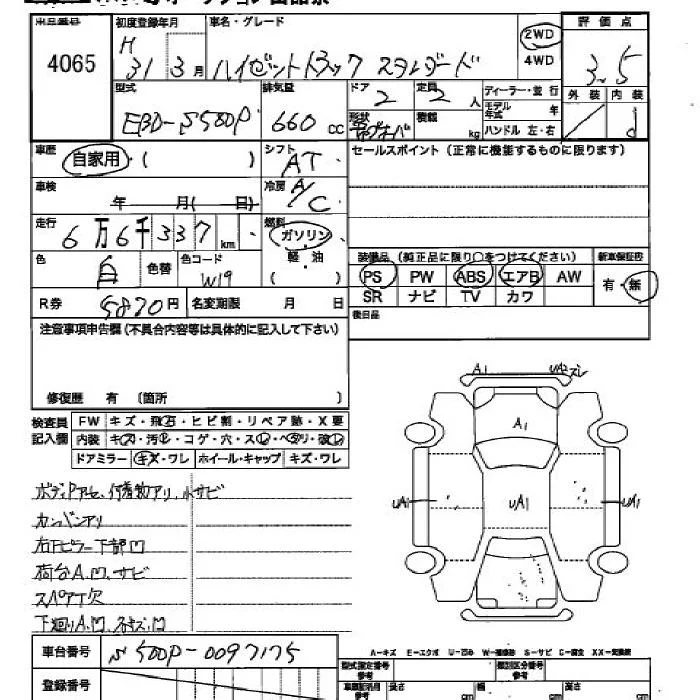 出品番号 初度登録年月 車名・グレード 2WD 評価点
4065 H 31 3月 ハイゼットトラック スタンダード 4WD 3.5
型式 排気量 ドア 定員 ディーラー・並行 外装 内装
EBD-S500P 660cc 2 2人 モデル年式 年
形状 積載 kg ハンドル 左・右 d
車歴 自家用・( ) シフト AT セールスポイント (正常に機能するものに限ります)
車検 年 月( 日) 冷房 A/C
走行 6万6千337km 燃料 ガソリン
軽・油
( )
色 白 色替 色コード W19
装備品 (純正品に限り○をつけてください) 新車保証書
PS PW ABS エアB AW 有・無
SR ナビ TV カワ
R券 5870円 名変期限 月 日 後日品
注意事項申告欄 (不具合内容等は具体的に記入して下さい)
修復歴 有 〔箇所 〕
検査員記入欄 FW キズ・飛石・ヒビ割・リペア跡・X要
内装 キズ・汚レ・コゲ・穴・スレ・ヘタリ・破レ
ドアミラー キズ・ワレ ホイール・キャップ キズ・ワレ
A1 UA2 ズレ
A1
UA1 UA1 UA1
ボディアセ、付着物アリ、小サビ
カンバンアリ
右Fピラー下部凹
荷台A、凹、サビ
スペアT欠
下廻りA、凹
A-キズ E-エクボ U-凹み W-補修跡 S-サビ C-腐食 XX-交換済
車台番号 S500P-0097175
登録番号
型式指定番号 参考 類別区分番号 参考
長さ cm 幅 cm 高さ cm